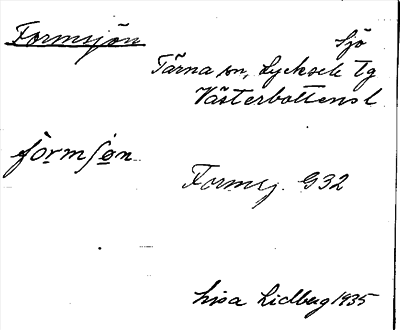 Formsjön Sjö
Tärna sn, Lycksele tg
Västerbottens l
fòrmʃön
Formsj. G32
Lisa Lidberg 1935